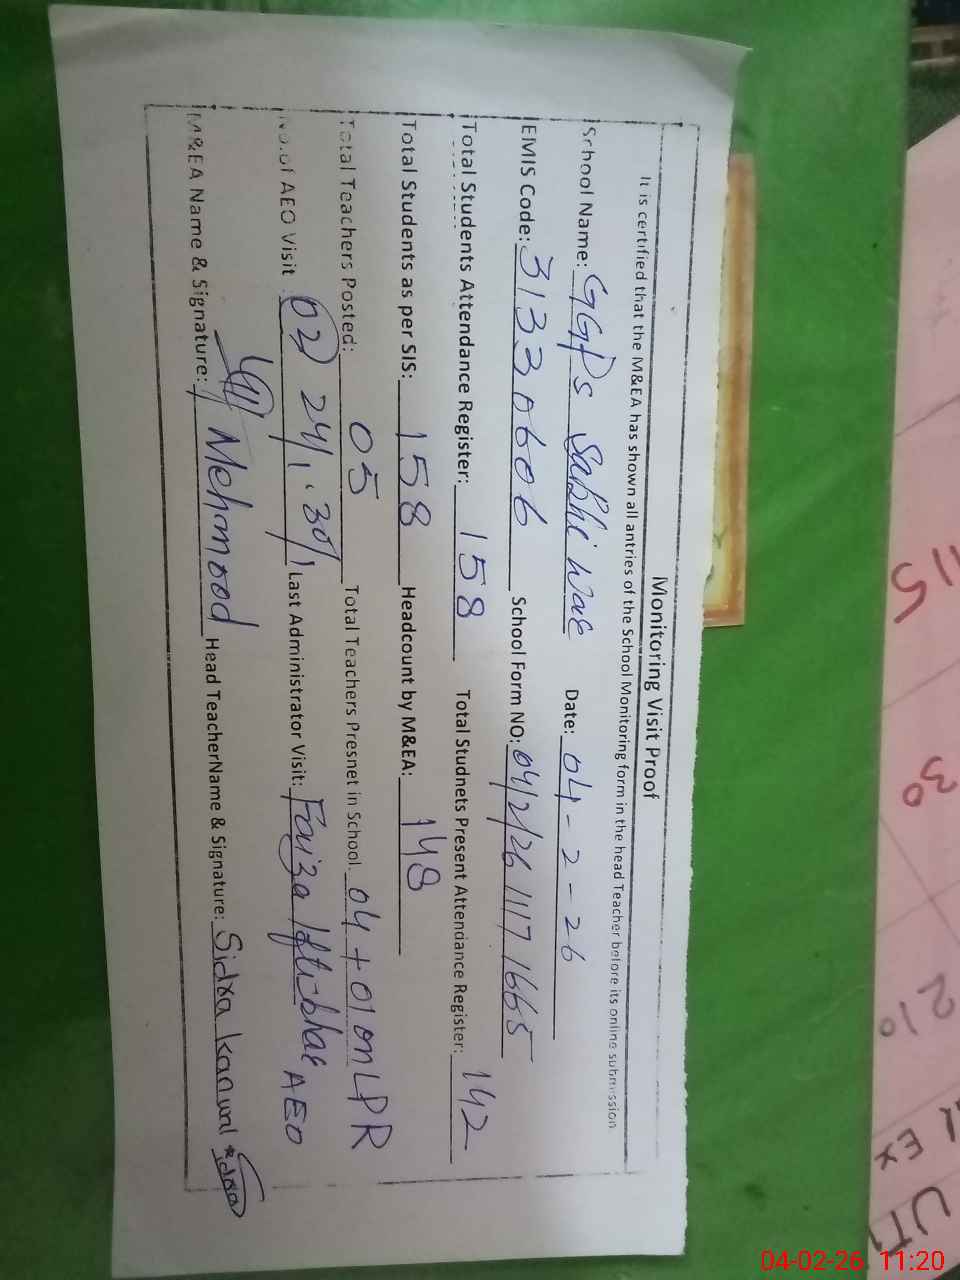 Monitoring Visit Proof
It is certified that the M&EA has shown all antries of the School Monitoring form in the head Teacher before its online submission
School Name: GGPS Sakhi War Date: 04-2-26
EMIS Code: 31330606 School Form NO: 04/2/26 1117 1665
Total Students Attendance Register: 158 Total Studnets Present Attendance Register: 142
Total Students as per SIS: 158 Headcount by M&EA: 148
Total Teachers Posted: 05 Total Teachers Presnet in School. 04 + 01 on LPR
No.of AEO Visit: 02 24/1, 30/1 Last Administrator Visit: Faiza Iftikhar AEO
M&EA Name & Signature: Mehmood Head TeacherName & Signature: Sidra kanwal Sidra
115
30
210
EX
UT1
04-02-26 11:20